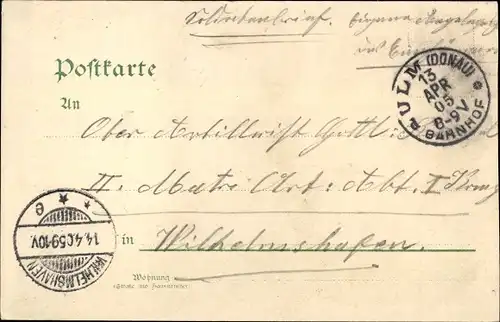 Soldatenbrief. Eigene Angelegenheit
Postkarte
ULM (DONAU)
13
APR
05
8-9V
BAHNHOF
An
Ober Artillerist Gottl:
II. Matr: Art: Abt. I Komp
WILHELMSHAVEN
14.4.05 9-10V.
e
in Wilhelmshafen.
Wohnung
(Straße und Hausnummer)